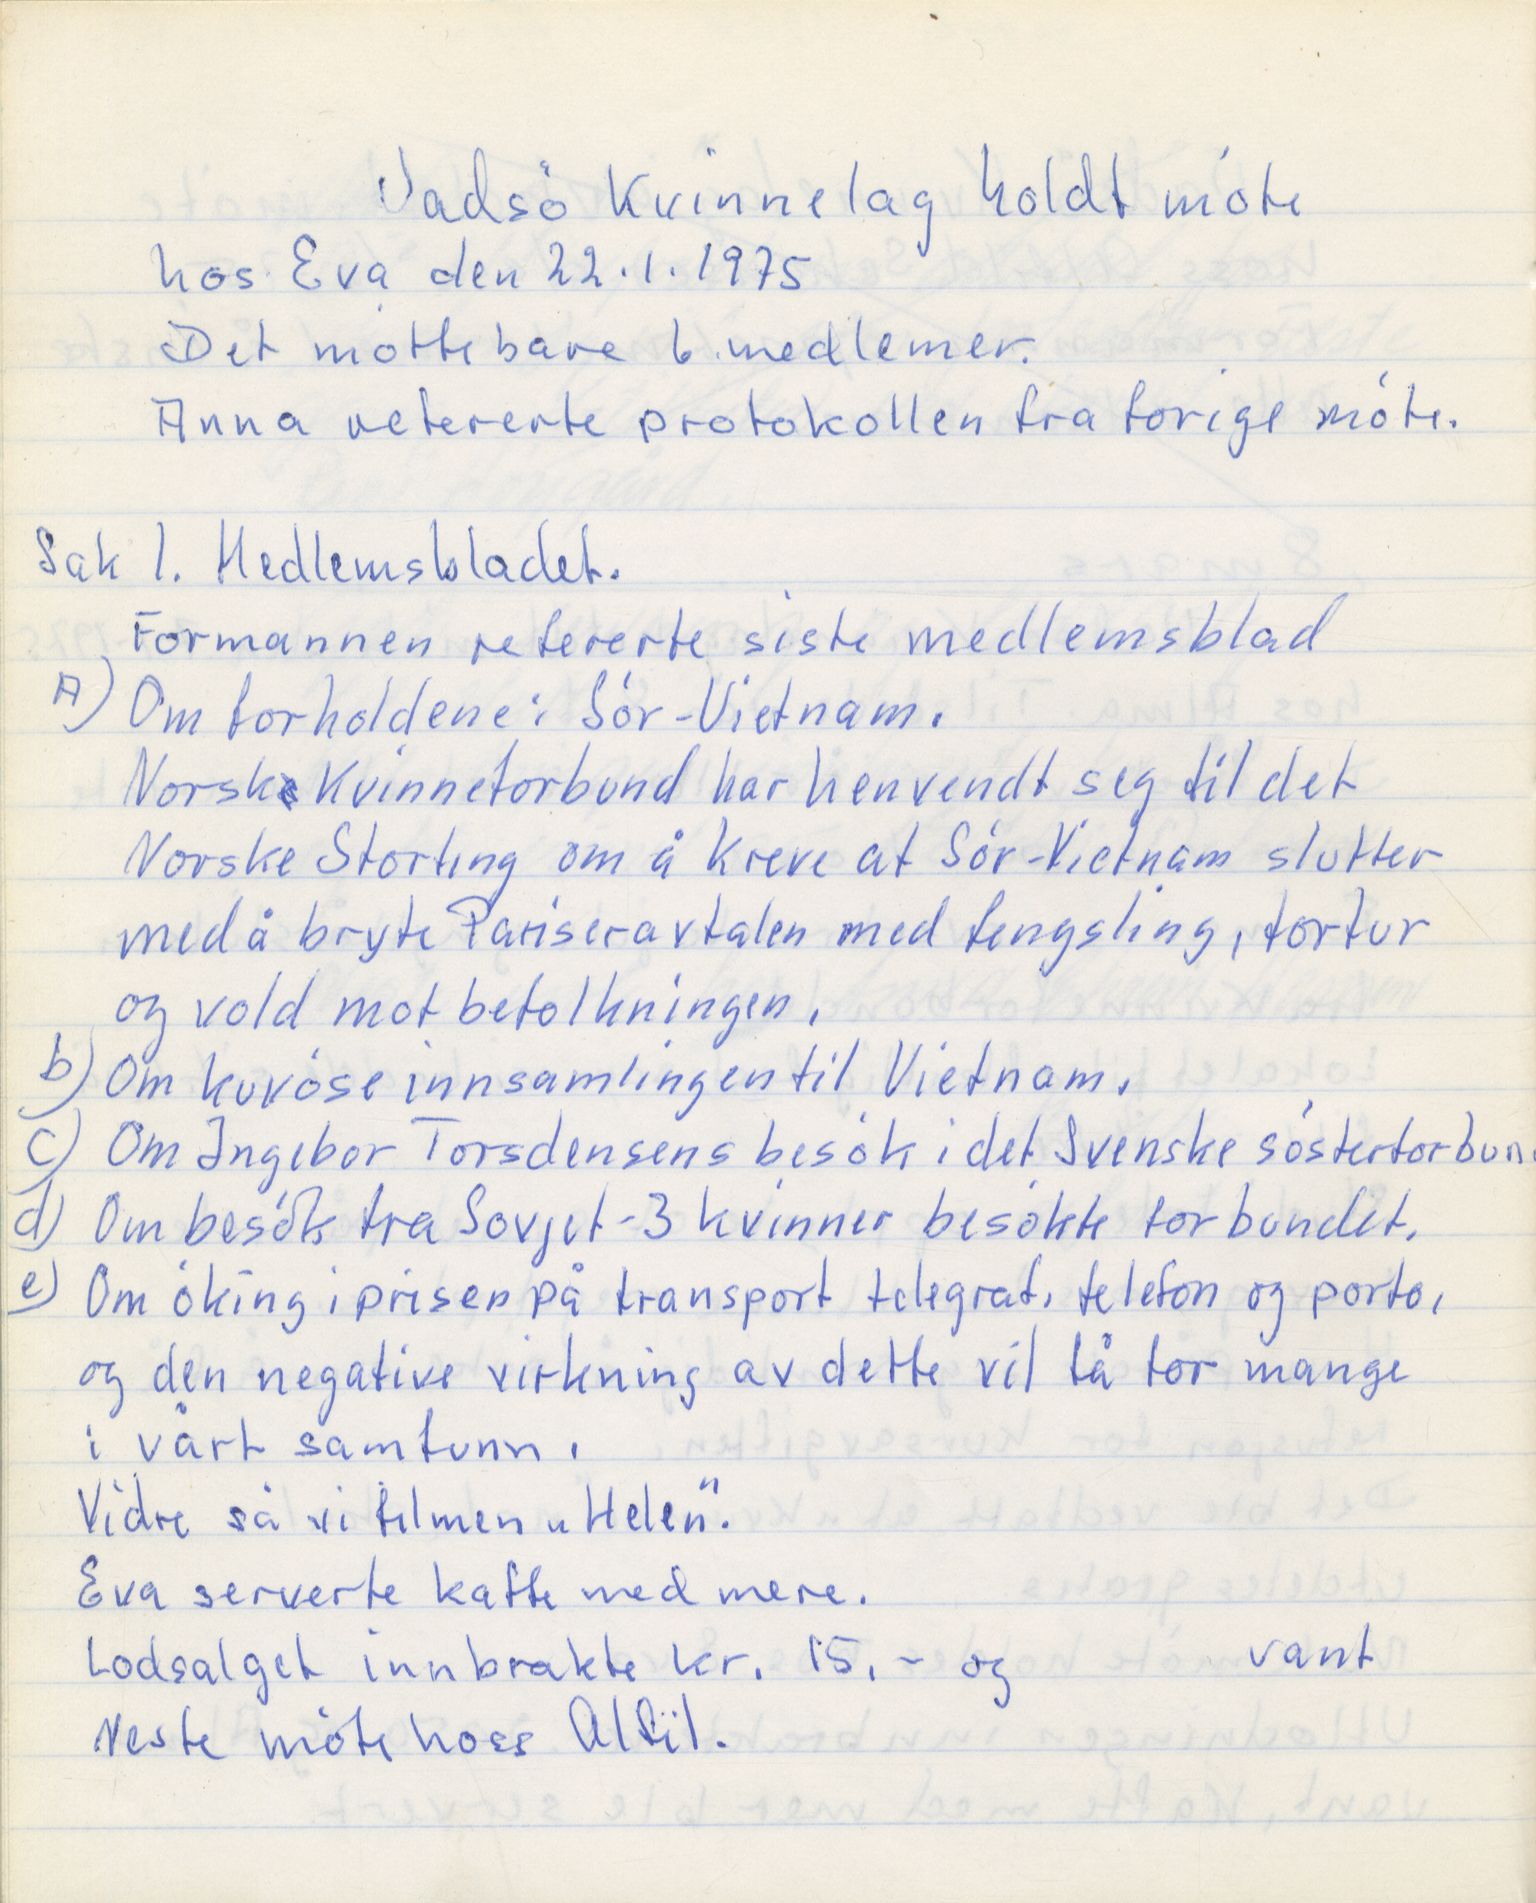 Vadsö Kvinnelag holdt möte
hos Eva den 22.1.1975
Det mötte bare 6 medlemer.
Anna refererte protokollen fra forige möte.
Sak 1. Medlemsbladet.
Formannen refererte siste medlemsblad
A) Om forholdene i Sör-Vietnam.
Norsk Kvinneforbund har henvendt seg til det
Norske Storting om å kreve at Sör-Vietnam slutter
med å bryte Pariseravtalen med fengsling, tortur
og vold mot befolkningen.
b) Om kuvöse innsamlingen til Vietnam.
c) Om Ingebor Torsdensens besök i det Svenske sösterforbun
d) Om besök fra Sovjet - 3 kvinner besökte forbundet.
e) Om öking i prisen på transport telegraf, telefon og porto,
og den negative virkning av dette vil få for mange
i vårt samfunn.
Vidre så vi filmen „Helen".
Eva serverte kaffe med mere.
Lodsalget innbrakte kr. 15.- og vant
Neste möte hoss Alfil.